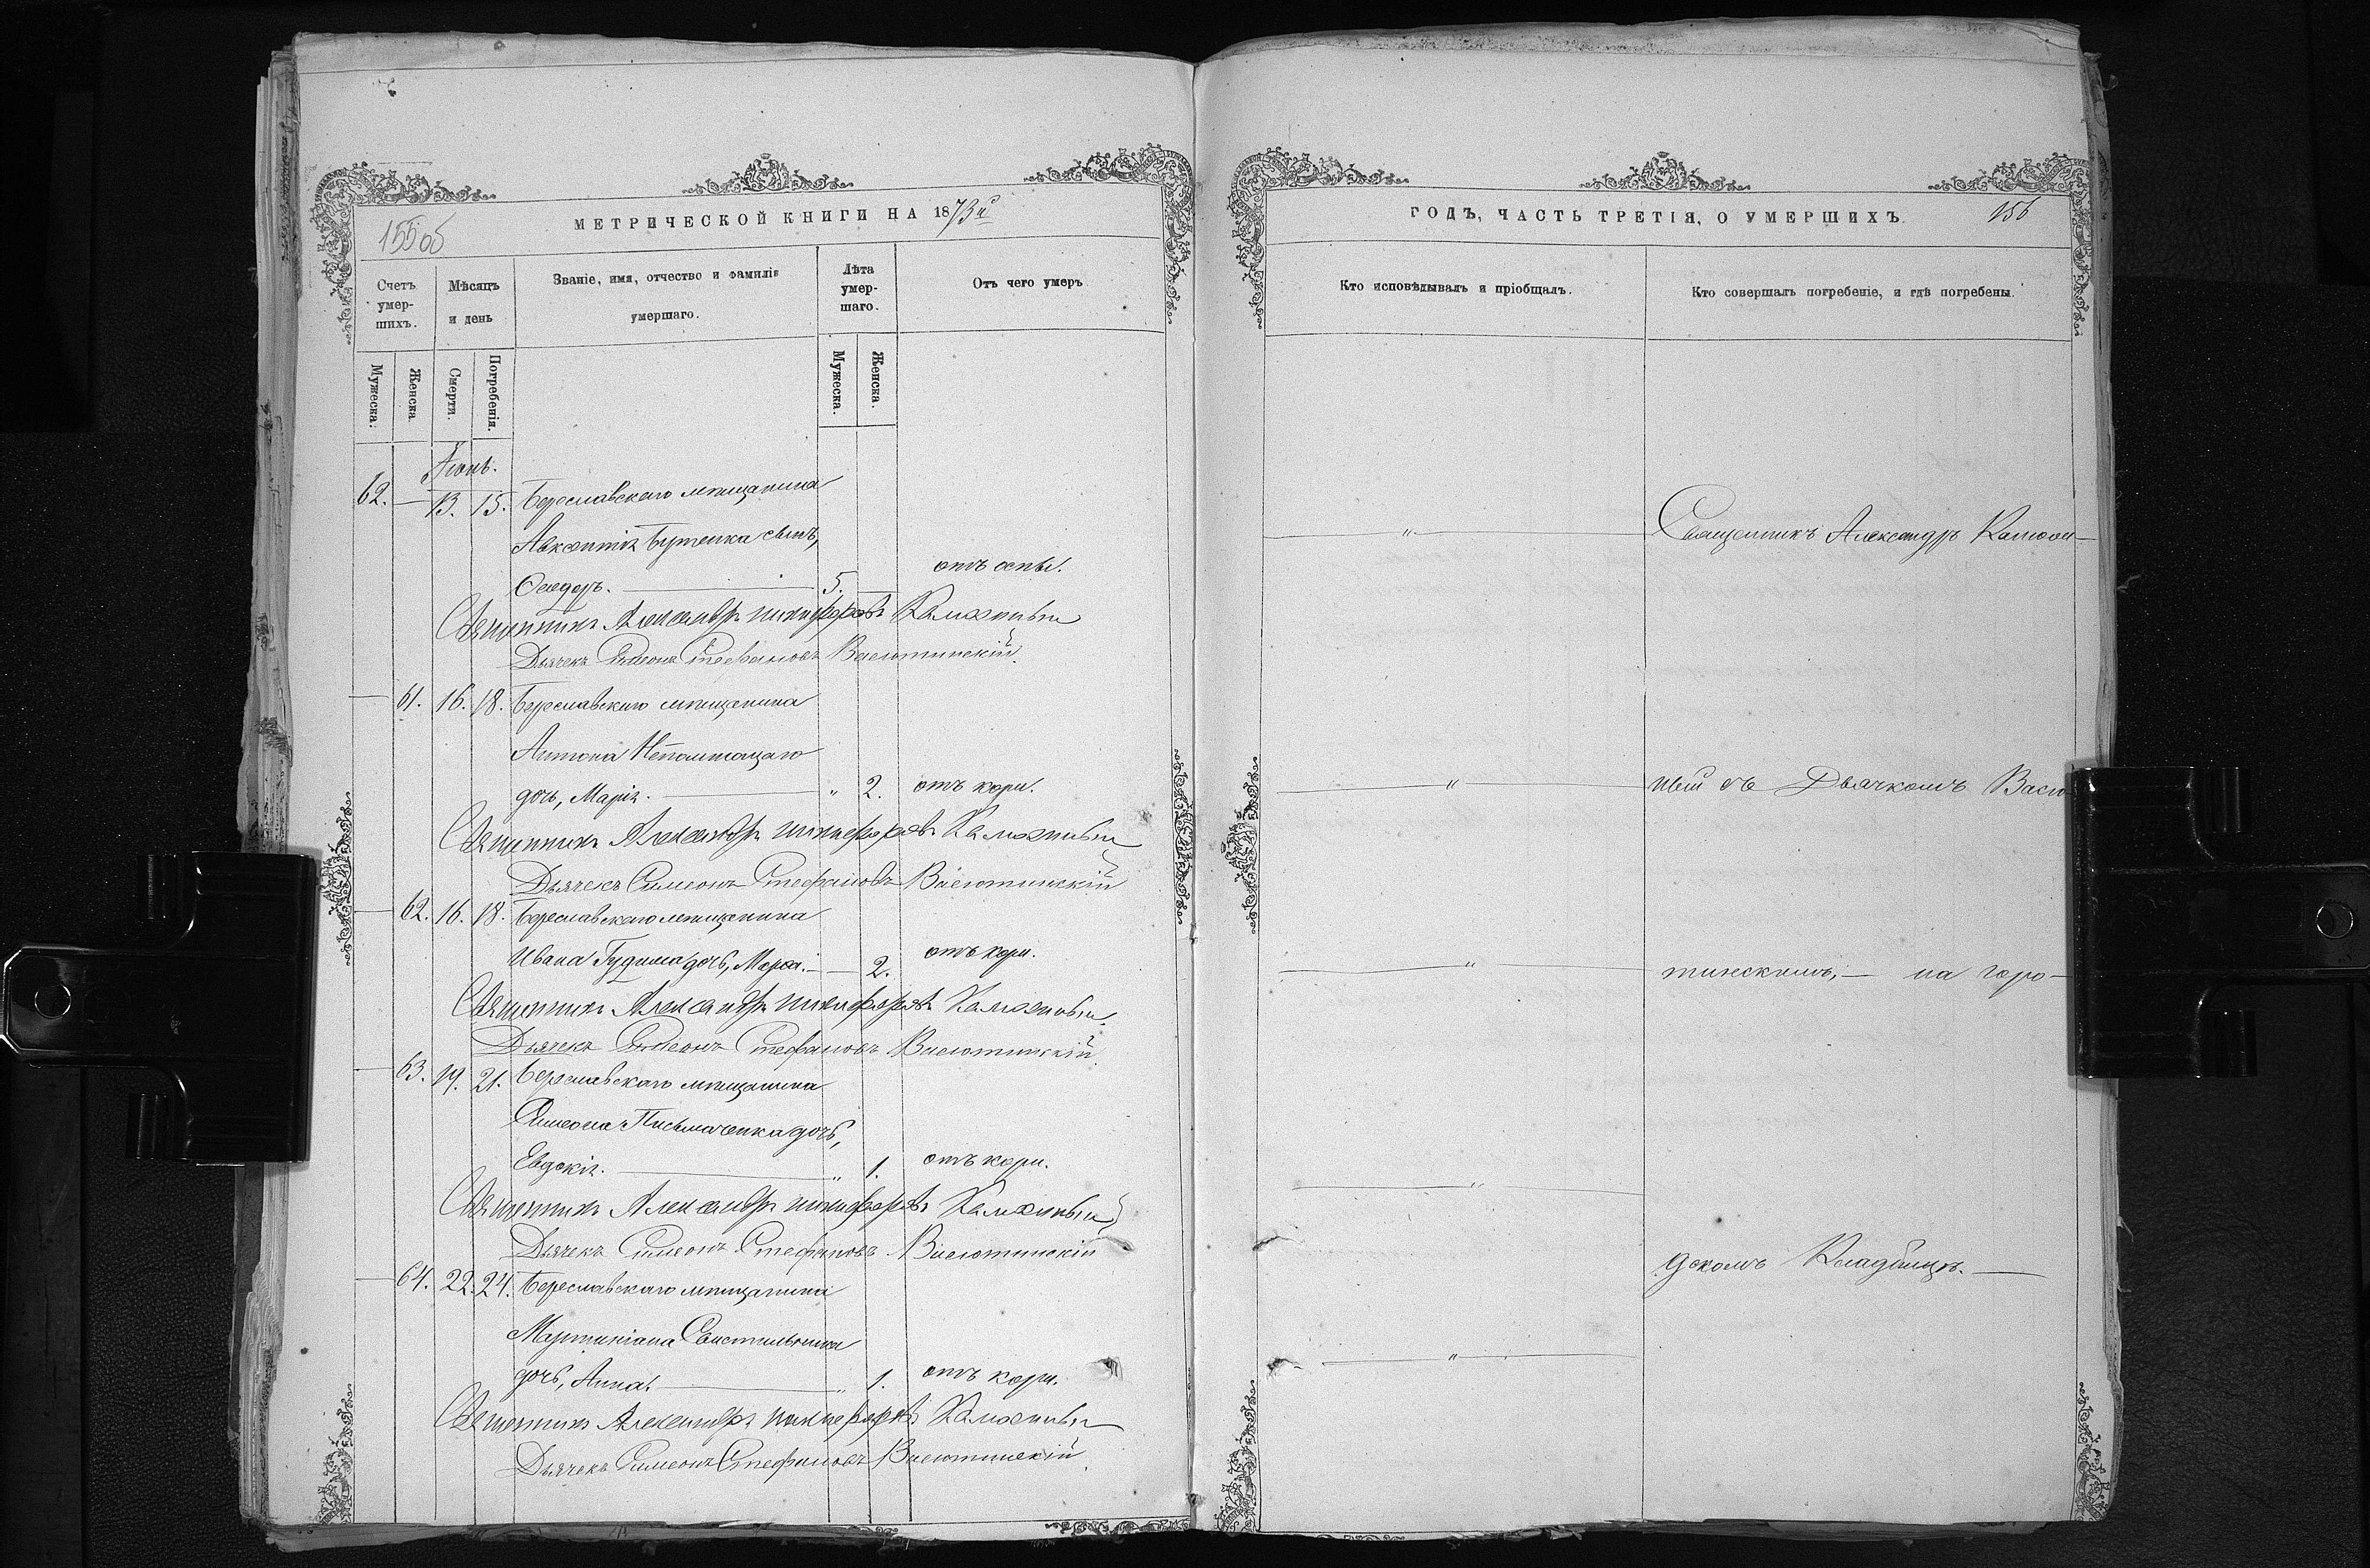 155об
МЕТРИЧЕСКОЙ КНИГИ НА 1873й
Счетъ умершихъ.
Мѣсяцъ и день
Званіе, имя, отчество и фамилія умершаго.
Лѣта умершаго.
Отъ чего умеръ
Мужеска.
Женска.
Смерти.
Погребенія.
Мужеска.
Женска.
Іюнь.
62. — 13. 15. Береславскаго мѣщанина
Авксентія Бутенка сынъ,
Ѳеодоръ. — 5. отъ оспы.
Священникъ Александръ Никифоровъ
Дьячекъ Симеонъ Стефановъ Васютинскій
— 61. 16. 18. Береславскаго мѣщанина
Антона
дочь, Марія. — " 2. отъ кори.
Священникъ Александръ Никифоровъ
Дьячекъ Симеонъ Стефановъ Васютинскій
— 62. 16. 18. Береславскаго мѣщанина
Ивана Гудима дочь, — 2. отъ кори.
Священникъ Александръ Никифоровъ
Дьячекъ Симеонъ Стефановъ Васютинскій
— 63. 19. 21. Береславскаго мѣщанина
Симеона Письмаченка дочь,
Евдокія. — " 1. отъ кори.
Священникъ Александръ Никифоровъ
Дьячекъ Симеонъ Стефановъ Васютинскій
— 64. 22. 24. Береславскаго мѣщанина
Мартиніана
дочь, Анна. — " 1. отъ кори.
Священникъ Александръ Никифоровъ
Дьячекъ Симеонъ Стефановъ Васютинскій
ГОДЪ, ЧАСТЬ ТРЕТІЯ, О УМЕРШИХЪ.
156
Кто исповѣдывалъ и пріобщалъ.
Кто совершалъ погребеніе, и гдѣ погребены.
— " — Священникъ Александръ
— " — ный съ Дьячкомъ Васю-
— " — тинскимъ, — на горо-
— " —
дскомъ Кладбищѣ. —
— " —